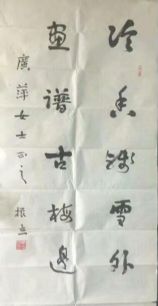 冷香錢雪外
畫譜古梅邊
廣萍女士正之
振立